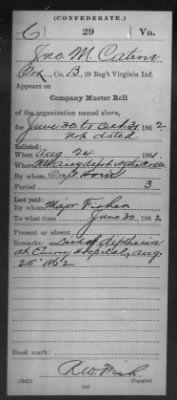 (CONFEDERATE.)
6 29 Va.
Jno. M. Catron
Co. B, 29 Reg't Virginia Inf.
Appears on
Company Muster Roll
of the organization named above,
for June 30 to Oct 31, 1862
not dated
Enlisted:
When Aug 24, 186
Where
By whom Capt Horn
Period 3
Last paid:
By whom Major Fisher
To what time June 30, 1862
Present or absent
Remarks: Died of
at Emory Hospital, Aug
25" 1862
Book mark:
R W
(642) Copyist.